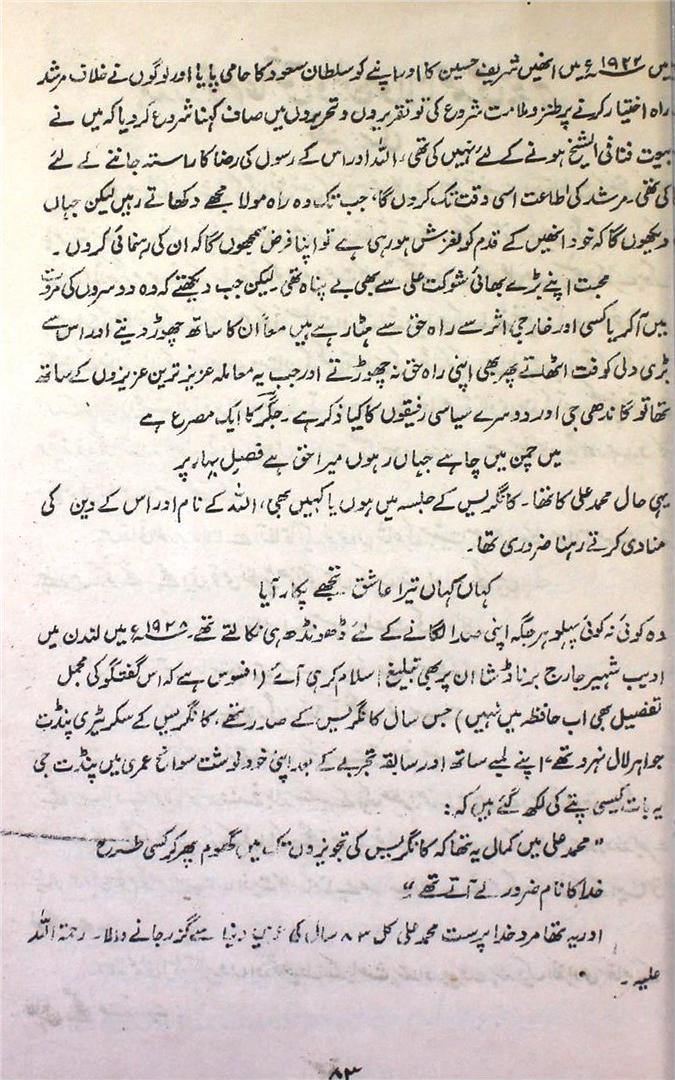 میں ۱۹۲۲ء میں انھیں شریف حسین کا اور اپنے کو سلطان سعود کا حامی پایا اور لوگوں نے خلاف مرشد
راہ اختیار کرنے پر طنز و ملامت شروع کی تو تقریروں و تحریروں میں صاف کہنا شروع کر دیا کہ میں نے
بیعت فنا فی الشیخ ہونے کے لئے نہیں کی تھی، اللہ اور اس کے رسول کی رضا کا راستہ جاننے کے لئے
کی تھی۔ مرشد کی اطاعت اسی وقت تک کروں گا، جب تک وہ راہ مولا مجھے دکھاتے رہیں لیکن جہاں
دیکھوں گا کہ خود انھیں کے قدم کو لغزش ہو رہی ہے تو اپنا فرض سمجھوں گا کہ ان کی رہنمائی کروں۔
محبت اپنے بڑے بھائی شوکت علی سے بھی بے پناہ تھی۔ لیکن جب دیکھتے کہ وہ دوسروں کی مروت
میں آکر یا کسی اور خارجی اثر سے راہ حق سے ہٹا رہے ہیں معاً ان کا ساتھ چھوڑ دیتے اور اس سے
بڑی دلی کوفت اٹھاتے پھر بھی اپنی راہ حق نہ چھوڑتے اور جب یہ معاملہ عزیز ترین عزیزوں کے ساتھ
تھا تو گاندھی جی اور دوسرے سیاسی رفیقوں کا کیا ذکر ہے۔ جگر کا ایک مصرع ہے
میں چمن میں چاہے جہاں رہوں میرا حق ہے فصل بہار پر
یہی حال محمد علی کا تھا۔ کانگریس کے جلسہ میں ہوں یا کہیں بھی، اللہ کے نام اور اس کے دین کی
منادی کرتے رہنا ضروری تھا۔
کہاں کہاں ترا عاشق تجھے پکار آیا
وہ کوئی نہ کوئی پہلو ہر جگہ اپنی صدا لگانے کے لئے ڈھونڈھ ہی نکالتے تھے۔ ۱۹۲۸ء میں لندن میں
ادیب شہیر جارج برناڈشا ان پر بھی تبلیغ اسلام کر ہی آئے (افسوس ہے کہ اس گفتگو کی مجمل
تفصیل بھی اب حافظہ میں نہیں) جس سال کانگریس کے صدر تھے، کانگریس کے سکریٹری پنڈت
جواہر لال نہرو تھے، اپنے لمبے ساتھ اور سابقہ تجربے کے بعد اپنی خود نوشت سوانح عمری میں پنڈت جی
یہ بات کیسی پتے کی لکھ گئے ہیں کہ:
"محمد علی میں کمال یہ تھا کہ کانگریس کی تجویزوں تک میں گھوم پھر کر کسی طرح
خدا کا نام ضرور لے آتے تھے"
اور یہ تھا مرد خدا پرست محمد علی کل ۸۳ سال کی عمر میں دنیا سے گزر جانے والا۔ رحمۃ اللہ
علیہ۔
۸۳